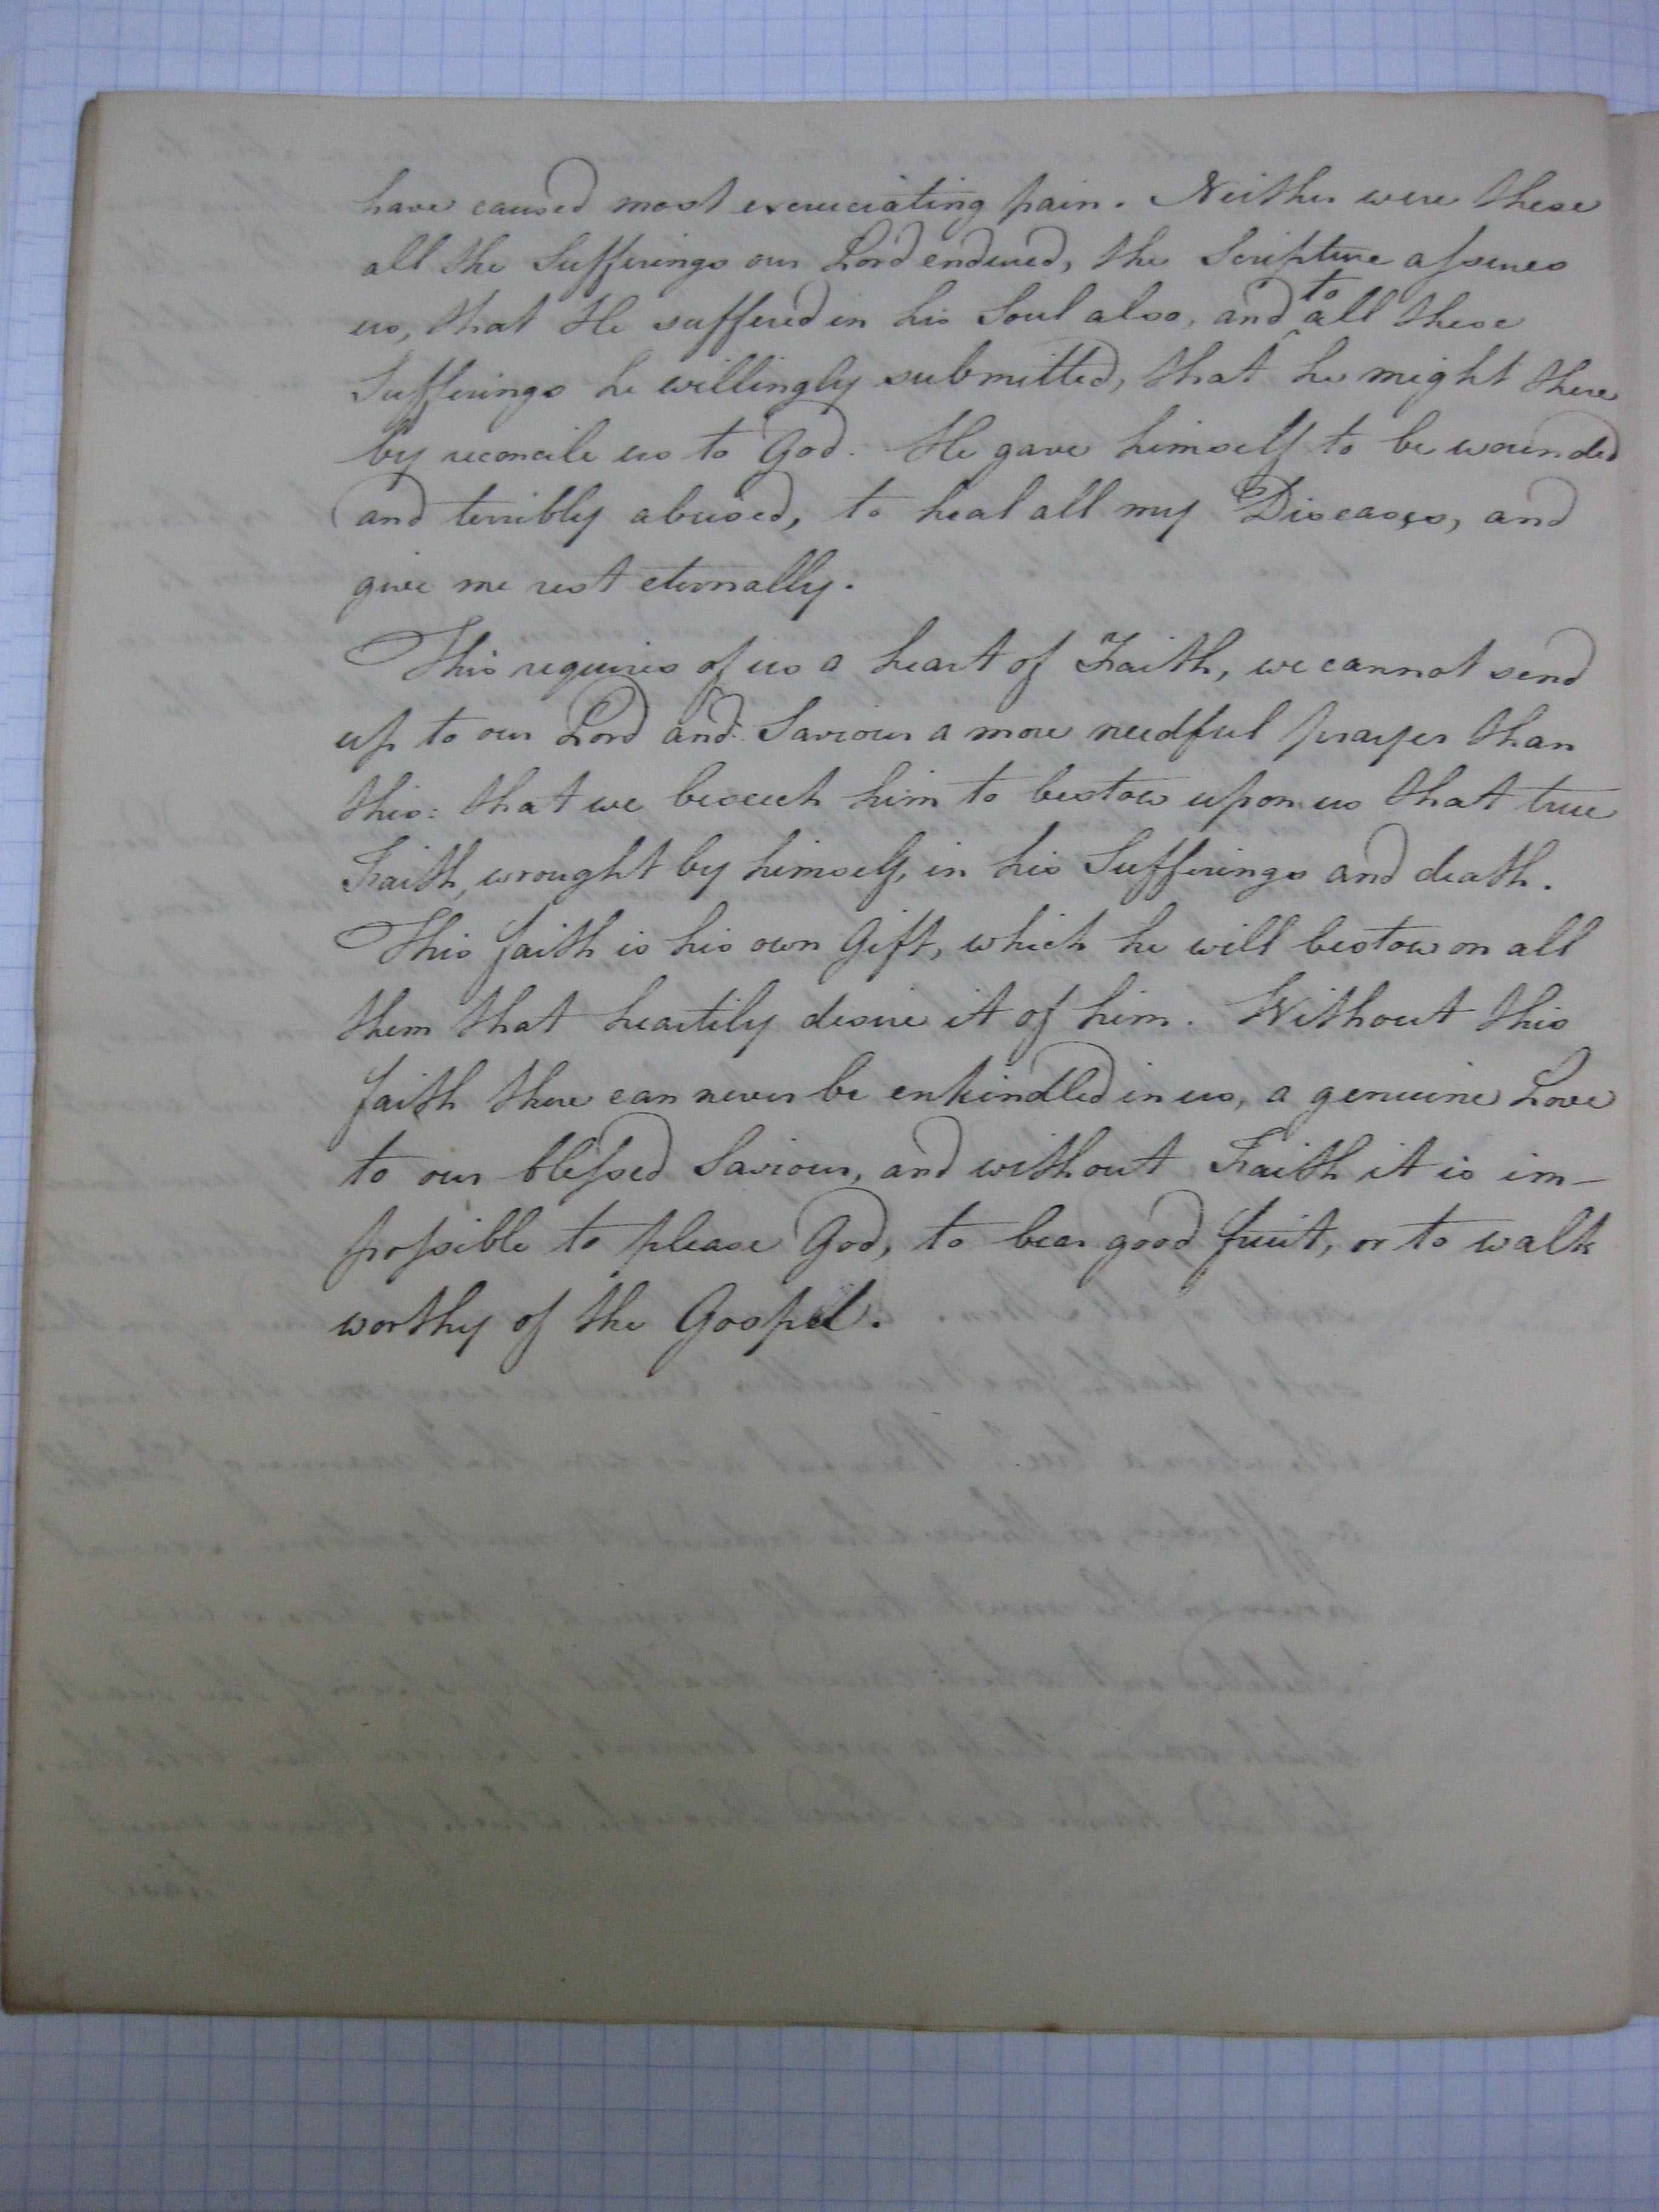 have caused most excruciating pain. Neither were these
all the Sufferings our Lord endured, the Scripture assures
us, that He suffered in his Soul also, and to all these
Sufferings he willingly submitted, that he might there
by reconcile us to God. He gave himself to be wounded
and terribly abused, to heal all my Diseases, and
give me rest eternally.
This requires of us a heart of Faith, we cannot send
up to our Lord and Saviour a more needful prayer than
this: that we beseech him to bestow upon us that true
Faith, wrought by himself, in his Sufferings and death.
This faith is his own Gift, which he will bestow on all
them that heartily desire it of him. Without this
faith there can never be enkindled in us, a genuine Love
to our blessed Saviour, and without Faith it is im-
possible to please God, to bear good fruit, or to walk
worthy of the Gospel.